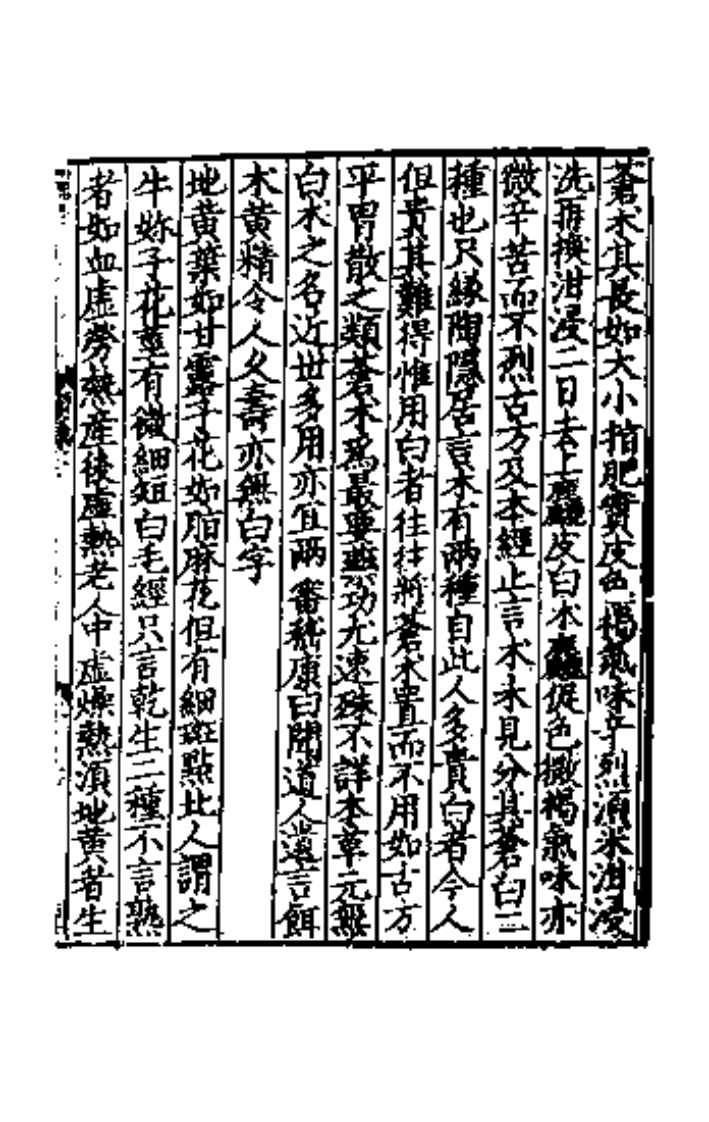 蒼朮其長如大小指肥實皮色褐氣味辛烈湏米泔浸
洗再換泔浸二日去上麄皮白朮麄促色微褐氣味亦
微辛苦而不烈古方及本經止言朮未見分其蒼白二
種也只緣陶隱居言朮有兩種自此人多貴白者今人
但貴其難得惟用白者往往將蒼朮置而不用如古方
平胃散之類蒼朮爲最要藥功尤速殊不詳本草元無
白朮之名近世多用亦宜兩審嵇康曰聞道人遺言餌
朮黄精令人久壽亦無白字
地黄葉如甘露子花如脂麻花但有細斑點北人謂之
牛妳子花莖有微細短白毛經只言乾生二種不言熟
者如血虛勞熱産後虛熱老人中虛燥熱湏地黄者生